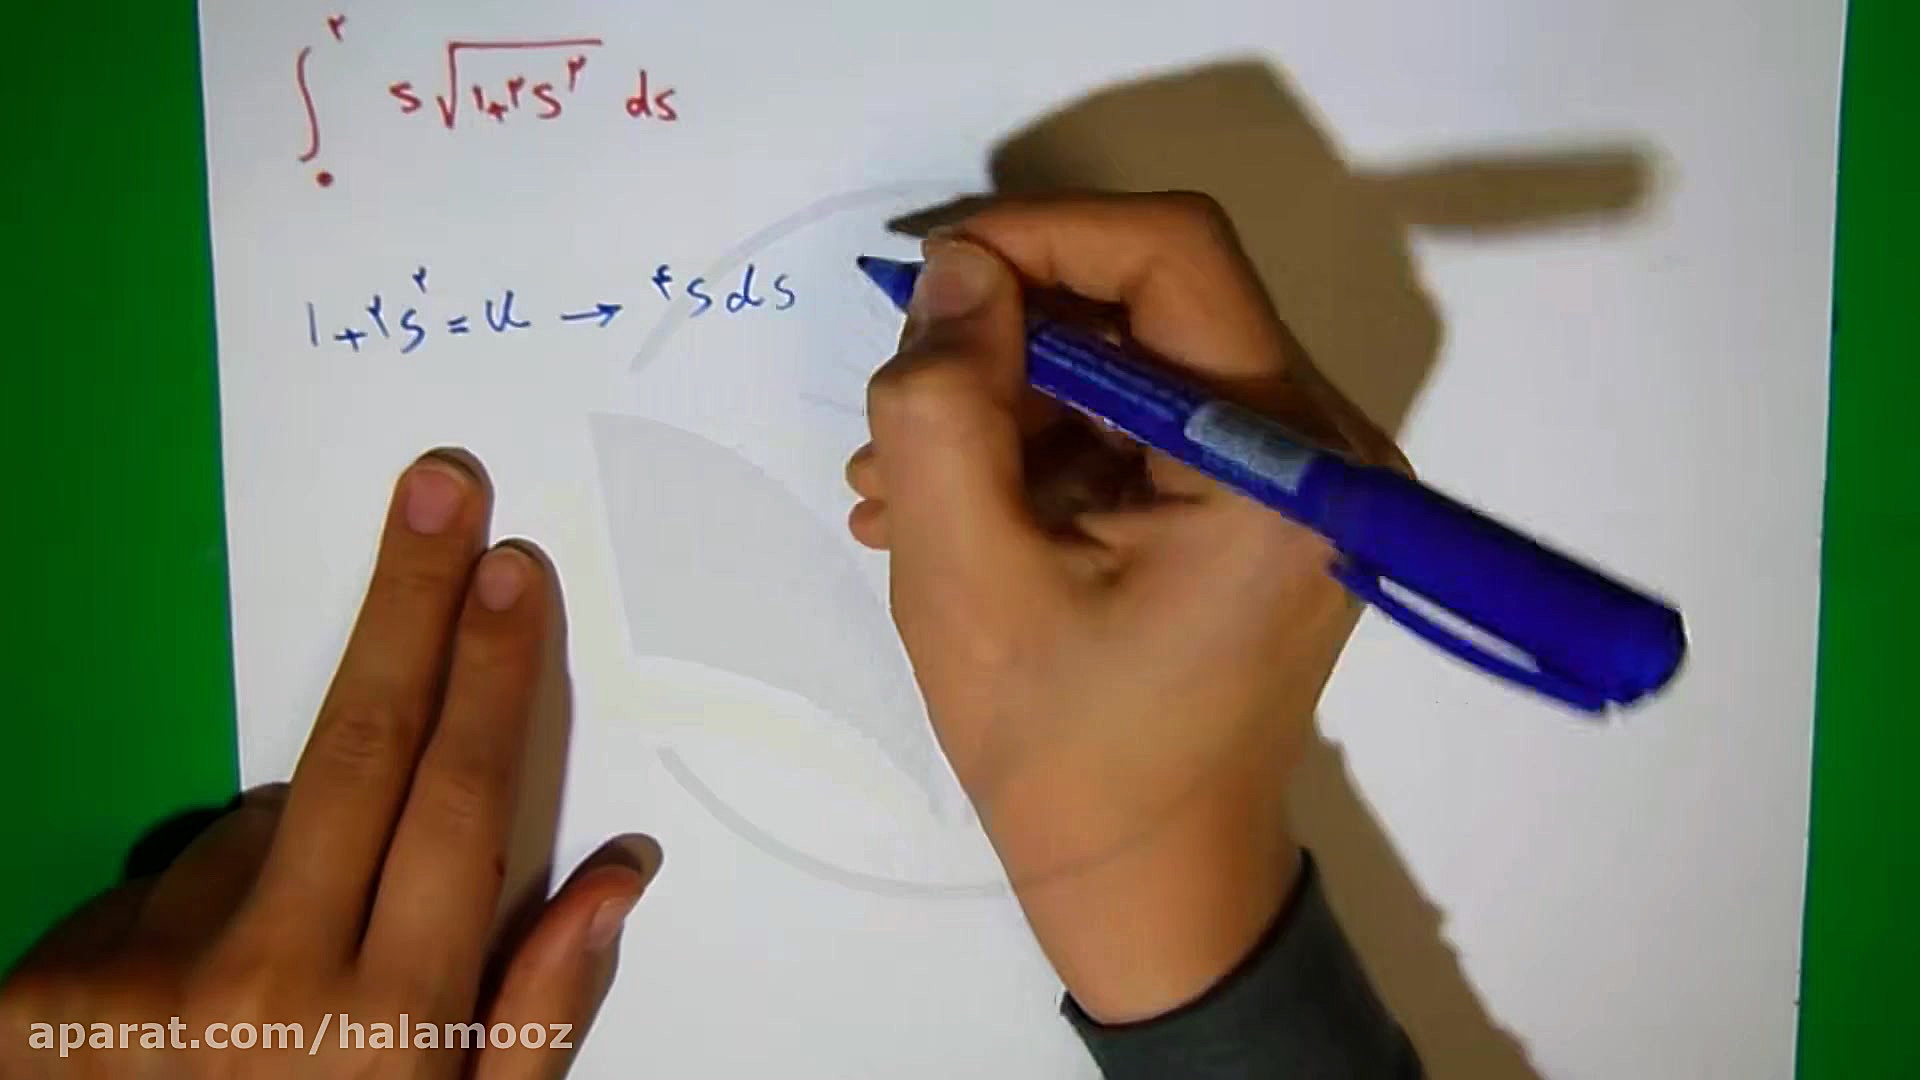 ∫₀² s√(۱+۲s²) ds
۱+۲s²=u → ۴sds
aparat.com/halamooz